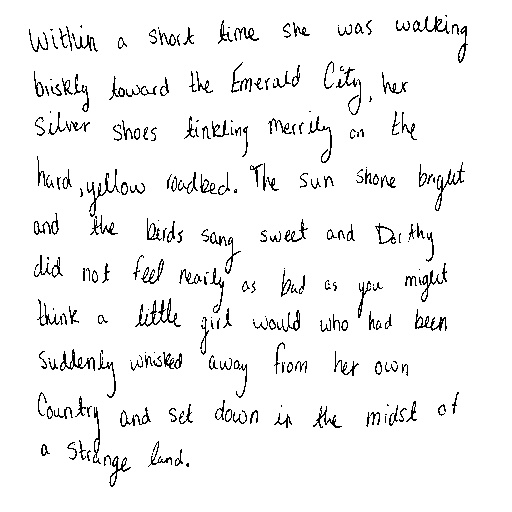 Within a short time she was walking
briskly toward the Emerald City, her
Silver Shoes tinkling merrily on the
hard, yellow roadbed. The sun shone bright
and the birds sang sweet and Dorthy
did not feel nearly as bad as you might
think a little girl would who had been
suddenly whisked away from her own
Country and set down in the midst of
a strange land.